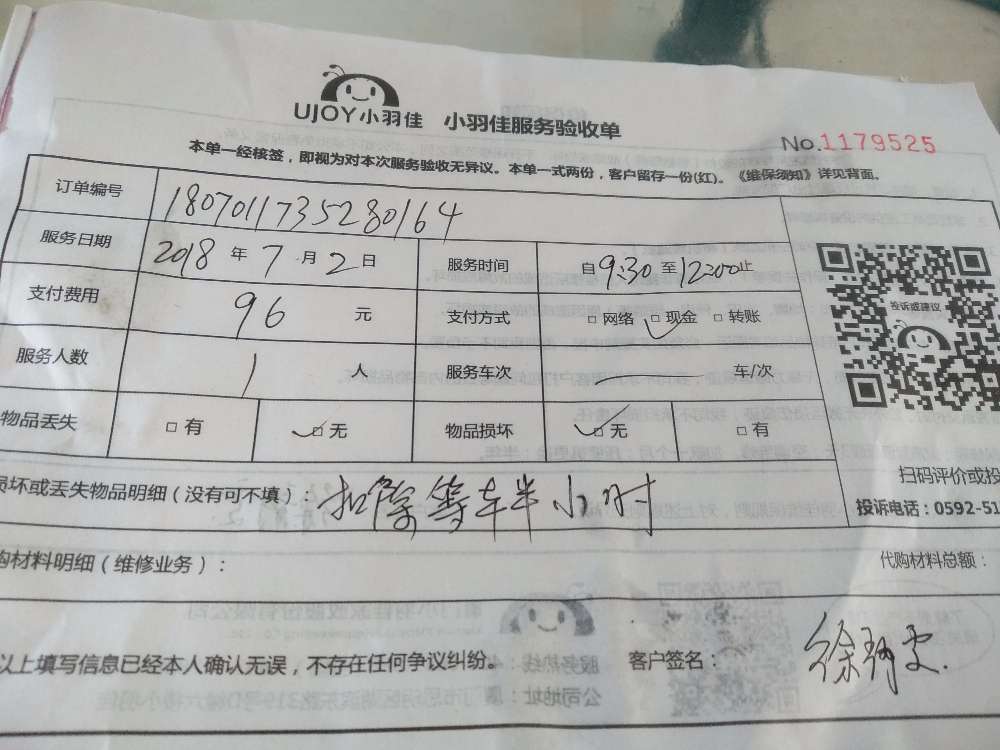 UJOY小羽佳 小羽佳服务验收单
No.1179525
本单一经核签，即视为对本次服务验收无异议。本单一式两份，客户留存一份(红)。《维保须知》详见背面。
订单编号 180701173528​0164
服务日期 2018 年 7 月 2 日 服务时间 自 9:30 至 12:00 止
支付费用 96 元 支付方式 □ 网络 □ 现金 □ 转账
投诉或建议
服务人数 1 人 服务车次 车/次
物品丢失 □ 有 □ 无 物品损坏 □ 无 □ 有
扫码评价或投
损坏或丢失物品明细（没有可不填）： 扣除等车半小时
投诉电话：0592-51
购材料明细（维修业务）： 代购材料总额：
以上填写信息已经本人确认无误，不存在任何争议纠纷。 客户签名：